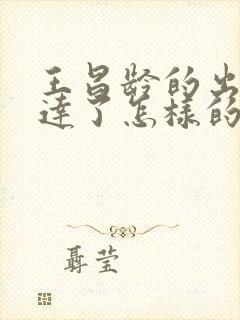 王昌龄的出
达了怎样的
聂莹